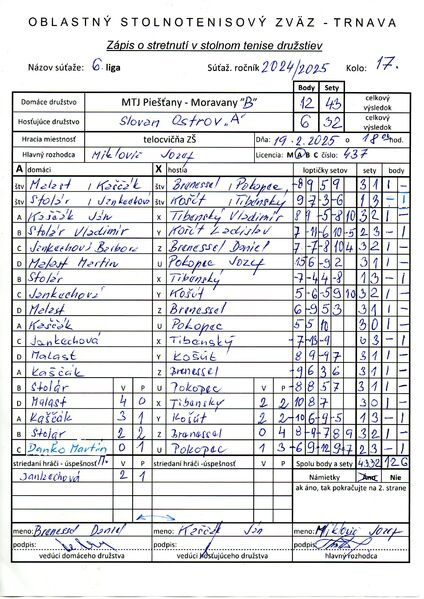 OBLASTNÝ STOLNOTENISOVÝ ZVÄZ - TRNAVA
Zápis o stretnutí v stolnom tenise družstiev
Názov súťaže: 6. liga Súťaž. ročník 2024/2025 Kolo: 17.
Body Sety
Domáce družstvo MTJ Piešťany - Moravany "B" 12 43 celkový výsledok
Hosťujúce družstvo Slovan Ostrov "A" 6 32 celkový výsledok
Hracia miestnosť telocvičňa ZŠ Dňa: 19.2.2025 o 18 00 hod.
Hlavný rozhodca Miklovič Jozef Licencia: M A B C číslo: 437
A domáci X hostia loptičky setov sety body
štv Malast / Kaščák štv Brenessel / Pokopec -8 9 5 9 3 1 1 -
štv Stolár / Jankechová štv Košút / Tibenský 9 7 -3 -6 1 3 - 1
A Kaščák Ján X Tibenský Vladimír 8 9 -5 -8 10 3 2 1 -
B Stolár Vladimír Y Košút Ladislav
C Jankechová Barbora Z Brenessel Daniel
D Malast Martin U Pokopec Jozef
B Stolár X Tibenský -7 -4 4 -8 1 3 - 1
C Jankechová Y Košút
D Malast Z Brenessel 6 -9 5 3 3 1 1 -
A Kaščák U Pokopec 5 5 10 3 0 1 -
C Jankechová X Tibenský 0 3 - 1
D Malast Y Košút 8 9 -9 7 3 1 1 -
A Kaščák Z Brenessel -9 6 3 6 3 1 1 -
B Stolár V P U Pokopec V P -8 8 5 7 3 1 1 -
D Malast 4 0 X Tibenský 2 2 3 0 1 -
A Kaščák 3 1 Y Košút 2 2 -10 -6 9 -5 1 3 - 1
B Stolár 2 2 Z Brenessel 0 4 8 -9 -7 8 9 3 2 1 -
C Danko Martin 0 1 U Pokopec 1 3
striedaní hráči - úspešnosť V P striedaní hráči - úspešnosť V P Spolu body a sety 43 32 12 6
Jankechová 2 1 Námietky Áno Nie
ak áno, tak pokračujte na 2. strane
meno: Brenessel Daniel meno: Kaščák Ján meno: Miklovič Jozef
podpis: podpis: podpis:
vedúci domáceho družstva vedúci hosťujúceho družstva hlavný rozhodca